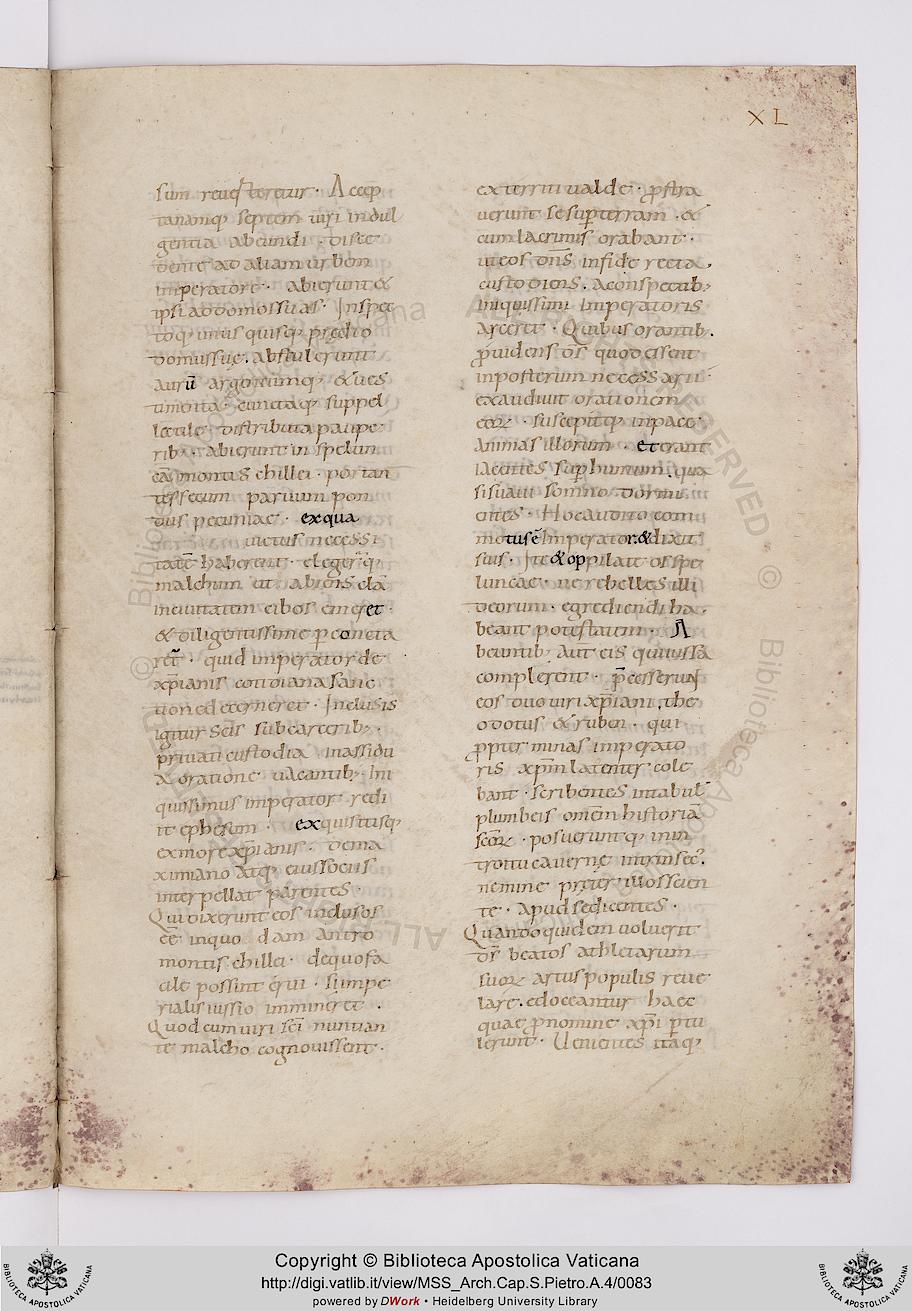 XL
sum reuerteretur · Accep
tanamq; septem uiri indul
gentia abeundi · disce
dente ad aliam urbem
imperatore · abierunt &
ipsi ad domos suas · Inspec
toq; unus quisq; predio
domus suę . abstulerunt
aurū argenteumq; & ues
timenta · cunctaq; suppel
lectile · distributa paupe
rib; · abierunt in spelun
cā montis chillei · portan
tes secum paruum pon
dus pecuniae · ex qua
uictus necessi
tatē haberent · elegerūtq;
malchum ut abiens clā
in ciuitatem cibos emeret ·
& diligentissime p͞concta
ret · quid imperator de
xp͞ianis cotidiana sanc
tione decerneret · Inclusis
igitur sc͞is sub carcerib; ·
priuati custodia in assidu
a oratione uacantib; · Ini
quissimus imperator redi
it ephesum · exquisitisq;
ex more xp͞ianis · de ma
ximiano atq; eius sociis
interpellat parentes ·
Qui dixerunt eos inclusos
ēē in quodam antro
montis chillei · de quo fa
cile possint equi · si impe
rialis iussio immineret ·
Quod cum uiri sc͞i nuntian
te malcho cognouissent ·
exterriti ualde · p͞stra
uerunt se sup terram · &
cum lacrimis orabant ·
ut eos dn͞s in fide recta .
custodiens . a conspectib;
iniquissimi imperatoris
arceret · Quibus orantib .
p͞uidens d͞s quod essent
in posterum necessarii ·
exaudiuit orationem
eoꝝ · suscepitq; in pace
animas illorum · et erant
iacentes sup humum . qua
si suaui somno dormi
entes · Hoc audito com
motus ē imperator · & dixit
suis · Ite & oppilate os spe
luncae · ne rebelles illi
deorum · egrediendi ha .
beant potestatem · A
beuntib; autem eis qui iussā
complerent · p͞cesserunt
eos duo uiri xp͞iani . the
odotus & ruben · qui
p͞pter minas imperato
ris xp͞m latenter cole
bant · Scribentes in tabul͞
plumbeis omēm historiā
sc͞oꝝ · posueruntq; in in
troitu cauernę intrinsec' .
nemine preter illos scien
te · apud se dicentes ·
Quando quidem uoluerit
d͞s beatos athletarum
suoꝝ artus populis reue
lare . edoceantur haec
quae p͞ nomine xp͞i p̱tu
lerunt · Uenientes itaq;
Copyright © Biblioteca Apostolica Vaticana
http://digi.vatlib.it/view/MSS_Arch.Cap.S.Pietro.A.4/0083
powered by DWork • Heidelberg University Library